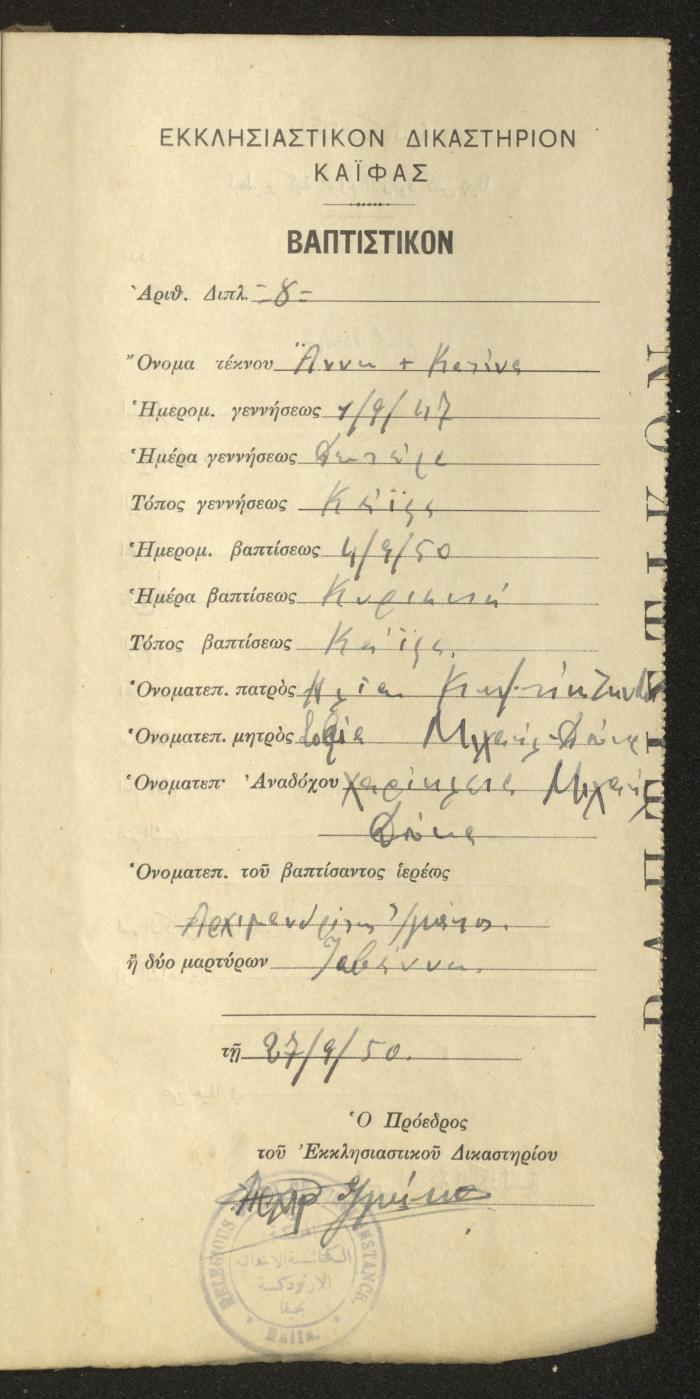 ΕΚΚΛΗΣΙΑΣΤΙΚΟΝ ΔΙΚΑΣΤΗΡΙΟΝ
ΚΑΪΦΑΣ
ΒΑΠΤΙΣΤΙΚΟΝ
Ἀριθ. Διπλ. =8=
Ὄνομα τέκνου Ἄννα + Κατίνα
Ἡμερομ. γεννήσεως 1/9/47
Ἡμέρα γεννήσεως Δευτέρα
Τόπος γεννήσεως Κάϊφα
Ἡμερομ. βαπτίσεως 4/9/50
Ἡμέρα βαπτίσεως Κυριακή
Τόπος βαπτίσεως Κάϊφα.
Ὀνοματεπ. πατρὸς Ἠλίας
Ὀνοματεπ. μητρὸς Σοφία Μιχαήλ Δούκα
Ὀνοματεπ· Ἀναδόχου Χαρίκλεια Μιχαήλ
Δούκα
Ὀνοματεπ. τοῦ βαπτίσαντος ἱερέως
Ἀρχιμανδρίτης Ἰγνάτιος.
ἢ δύο μαρτύρων
τῇ 27/9/50.
Ὁ Πρόεδρος
τοῦ Ἐκκλησιαστικοῦ Δικαστηρίου
Ἀρχιμ Ἰγνάτιος
RELEGIOUS INSTANCE
الارثوذكسية
بحيفا
Haifa.
ΒΑΠΤΙΣΤΙΚΟΝ